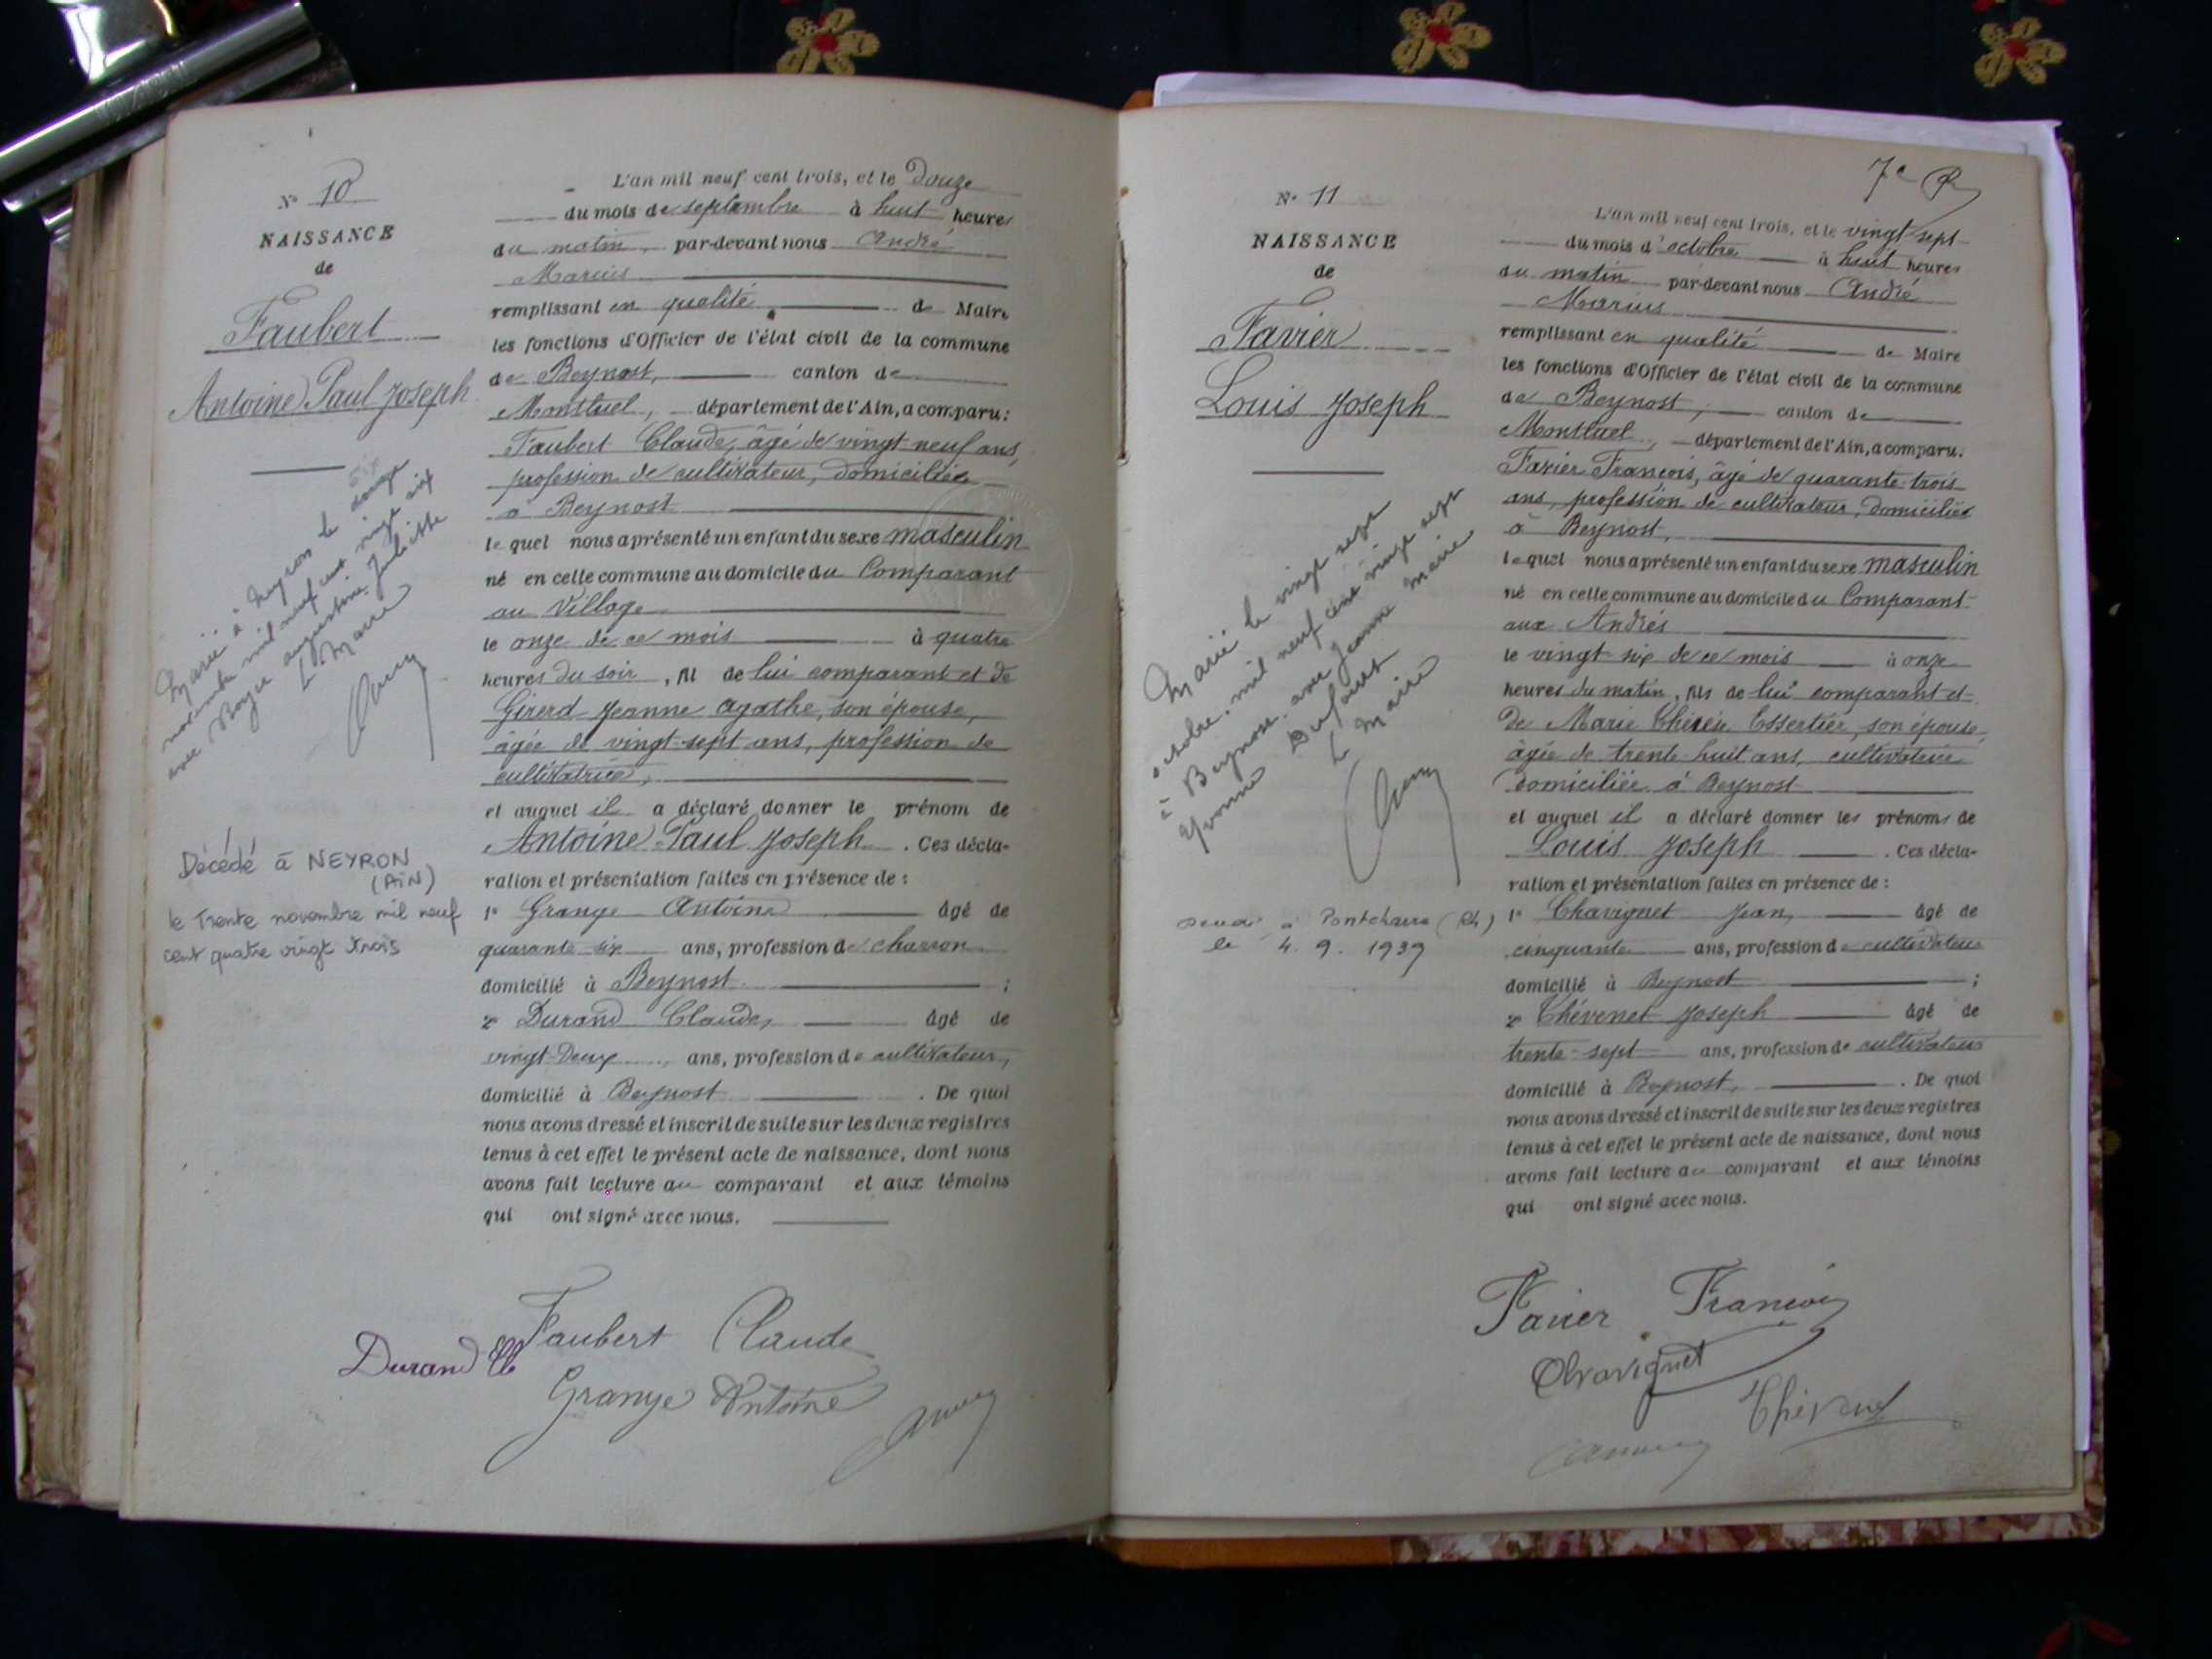 N° 10
NAISSANCE
de
Faubert
Antoine Paul Joseph
Marié à Neyron le six
novembre mil neuf cent vingt six
avec augustine Juliette
Le Maire
Décédé à NEYRON
(AIN)
le Trente novembre mil neuf
cent quatre vingt trois
L'an mil neuf cent trois, et le Douze
du mois de septembre à huit heures
du matin, par-devant nous André
Marius
remplissant en qualité de Maire
les fonctions d'Officier de l'état civil de la commune
de Beynost, canton de
Montluel, département de l'Ain, a comparu:
Faubert Claude, âgé de vingt-neuf ans,
profession de cultivateur, domicilié
à Beynost
lequel nous a présenté un enfant du sexe masculin
né en cette commune au domicile du Comparant
au Village
le onze de ce mois à quatre
heures du soir, fils de lui comparant et de
Girerd Jeanne Agathe, son épouse,
âgée de vingt-sept ans, profession de
cultivatrice,
et auquel il a déclaré donner le prénom de
Antoine Paul Joseph. Ces décla-
ration et présentation faites en présence de :
1° Grange Antoine âgé de
quarante-six ans, profession de charron
domicilié à Beynost ;
2° Durand Claude, âgé de
vingt-Deux ans, profession de cultivateur,
domicilié à Beynost. De quoi
nous avons dressé et inscrit de suite sur les deux registres
tenus à cet effet le présent acte de naissance, dont nous
avons fait lecture au comparant et aux témoins
qui ont signé avec nous.
Faubert Claude
Durand Cl
Grange Antoine
7e
N° 11
NAISSANCE
de
Favier
Louis Joseph
Marié le vingt sept
octobre mil neuf cent vingt sept
à Beynost avec Jeanne Marie
Yvonne Dufourt
Le Maire
à Pontcharra (Rh)
le 4. 9. 1939
L'an mil neuf cent trois, et le vingt-sept
du mois d'octobre à huit heures
du matin par-devant nous André
Marius
remplissant en qualité de Maire
les fonctions d'Officier de l'état civil de la commune
de Beynost, canton de
Montluel, département de l'Ain, a comparu:
Favier François, âgé de quarante-trois
ans, profession de cultivateur, domicilié
à Beynost,
lequel nous a présenté un enfant du sexe masculin
né en cette commune au domicile du Comparant
aux Andrés
le vingt-six de ce mois à onze
heures du matin, fils de lui comparant et
de Marie Thérèse Essertier, son épouse,
âgée de trente-huit ans, cultivatrice
domiciliée à Beynost
et auquel il a déclaré donner les prénoms de
Louis Joseph. Ces décla-
ration et présentation faites en présence de :
1° Chavignet Jean, âgé de
cinquante ans, profession de cultivateur
domicilié à Beynost ;
2° Thévenet Joseph âgé de
trente-sept ans, profession de cultivateur
domicilié à Beynost. De quoi
nous avons dressé et inscrit de suite sur les deux registres
tenus à cet effet le présent acte de naissance, dont nous
avons fait lecture au comparant et aux témoins
qui ont signé avec nous.
Favier François
Chavignet
Thévenet